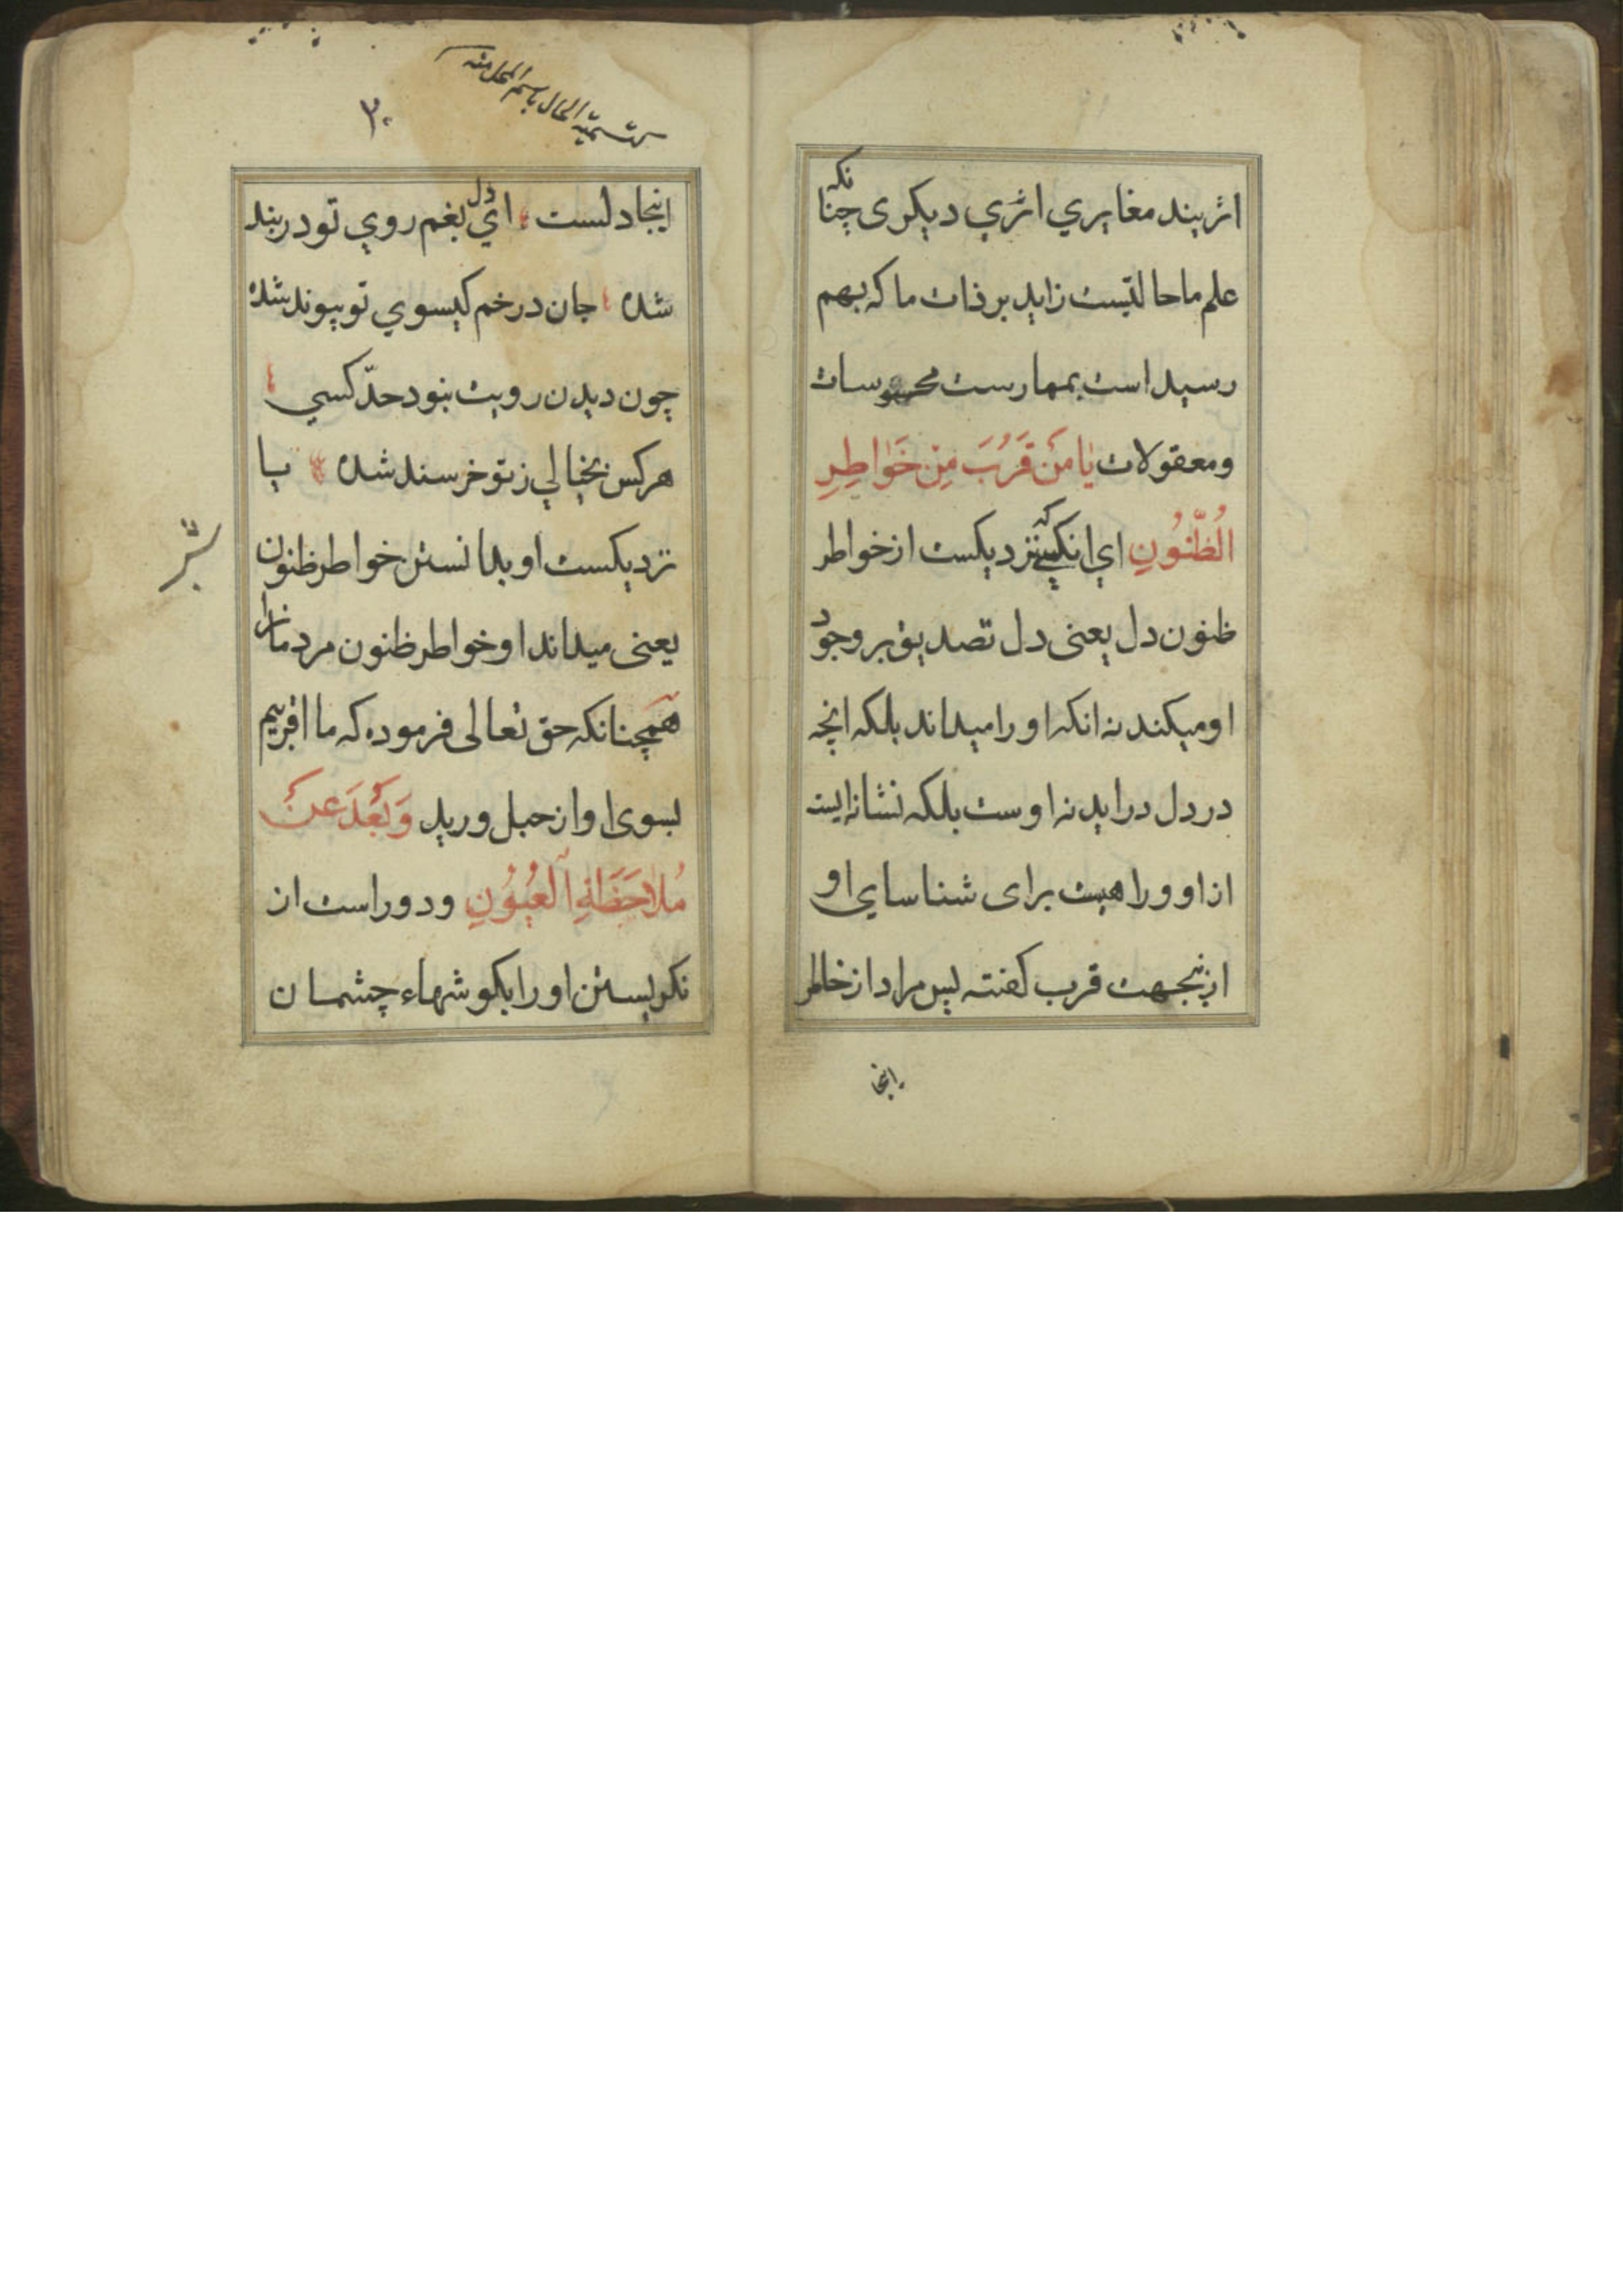 اثربیند مغایري اثري دیکری چنانکه
علم ما حالتیست زاید بر ذات ما که بهم
رسیداست بمهارست محسوسات
ومعقولات یٰا مَن قَرُبَ مِن خَوٰاطِرِ
الظُّنُونِ اي انکسیکه نزدیکست از خواطر
ظنون دل یعنی دل تصدیق بر وجود
او میکند نه انکه او را میداند بلکه انچه
در دل دراید نه اوست بلکه نشانه ایست
از او و راهیست برای شناسایي او
ازینجهت قرب کفته پس مراد از خاطر
اینجا
تسمیة الحال باسم المحل منه
۳۰
اینجا دلست اي دل بغم روي تو دربند
شده جان در خم کیسوي تو پیوند شده
چون دیدن رویت نبود حدّ کسي
هرکس بخیالي ز تو خرسند شده یا
نزدیکست او بدانستن خواطر ظنون
یعنی میداند او خواطر ظنون مردمانرا
همچنانکه حق تعالی فرموده که ما اقربیم
بسوی او از حبل ورید وَبَعُدَ عَن
مُلاٰحَظَةِ الْعُیُوُنِ ودوراست از
نکریستن او را بکوشهاء چشمان